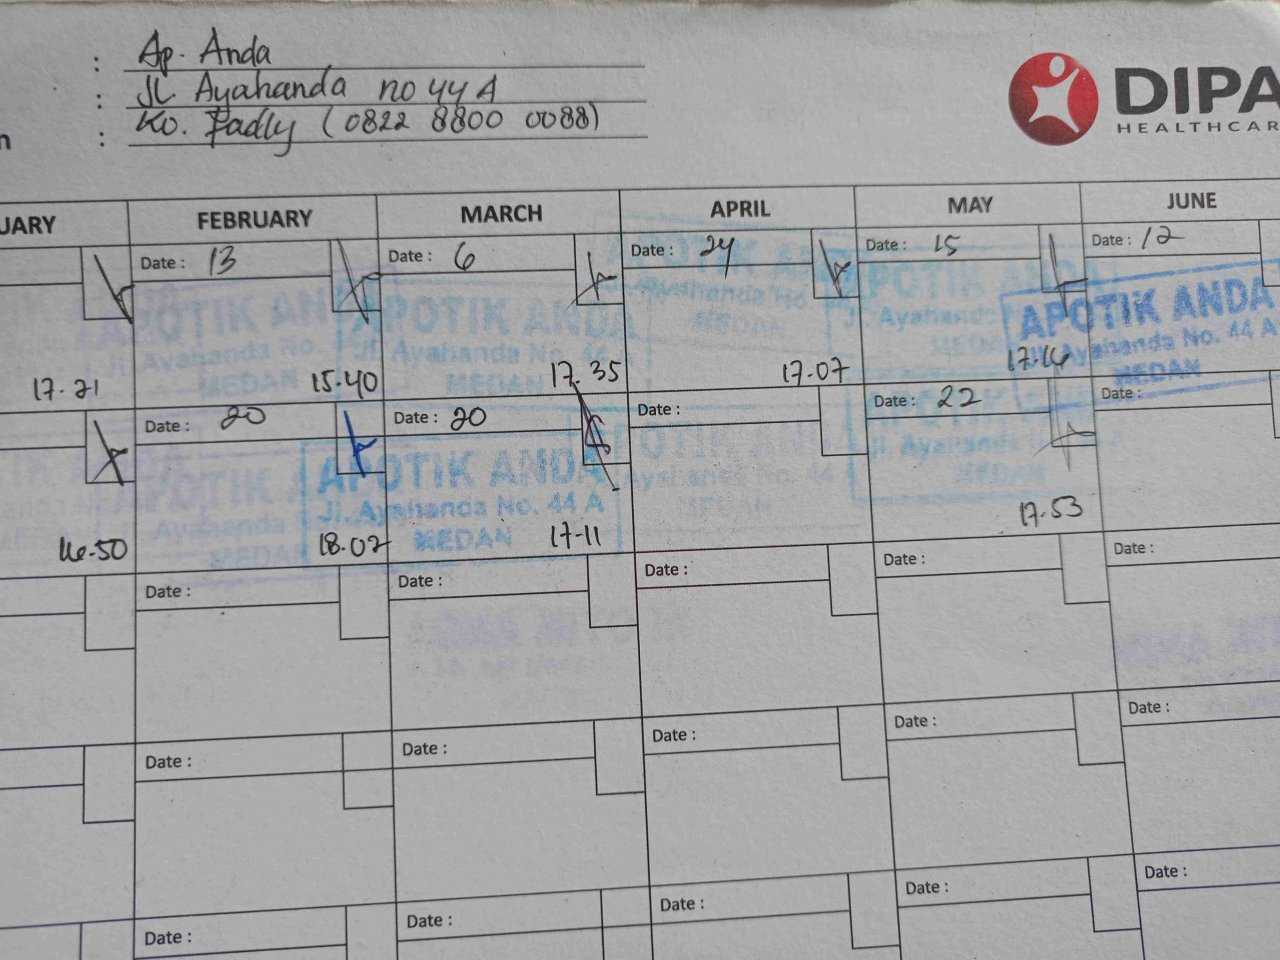 : Ap. Anda
: Jl Ayahanda no 44 A
: Ko. Fadly (0822 8800 0088)
DIPA
HEALTHCAR
UARY FEBRUARY MARCH APRIL MAY JUNE
Date : 13 Date : 6 Date : 24 Date : 15 Date : 12
APOTIK ANDA
Jl. Ayahanda No. 44 A
MEDAN
17.21 15.40 17.35 17.07 17.16
Date : 20 Date : 20 Date : Date : 22 Date :
APOTIK ANDA
Jl. Ayahanda No. 44 A
MEDAN
16.50 18.02 17-11 17.53
Date : Date : Date : Date : Date :
Date : Date : Date : Date : Date :
Date : Date : Date : Date : Date :